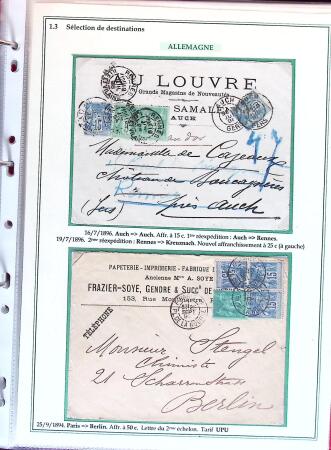 1.3 Sélection de destinations
ALLEMAGNE
U LOUVRE
Grands Magasins de Nouveautés
SAMALE
AUCH
Mademoiselle de
Château de
près Auch
(Gers)
16/7/1896. Auch => Auch. Affr. à 15 c. 1ère réexpédition : Auch => Rennes.
19/7/1896. 2ème réexpédition : Rennes => Kreuznach. Nouvel affranchissement à 25 c (à gauche)
PAPETERIE - IMPRIMERIE - FABRIQUE
Ancienne Mon A. SOYE
FRAZIER-SOYE, GENDRE & SUCCR
153, Rue Montmartre,
TÉLÉPHONE
Monsieur Stengel
Chimiste
21
Berlin
25/9/1894. Paris => Berlin. Affr. à 50 c. Lettre du 2ème échelon. Tarif UPU